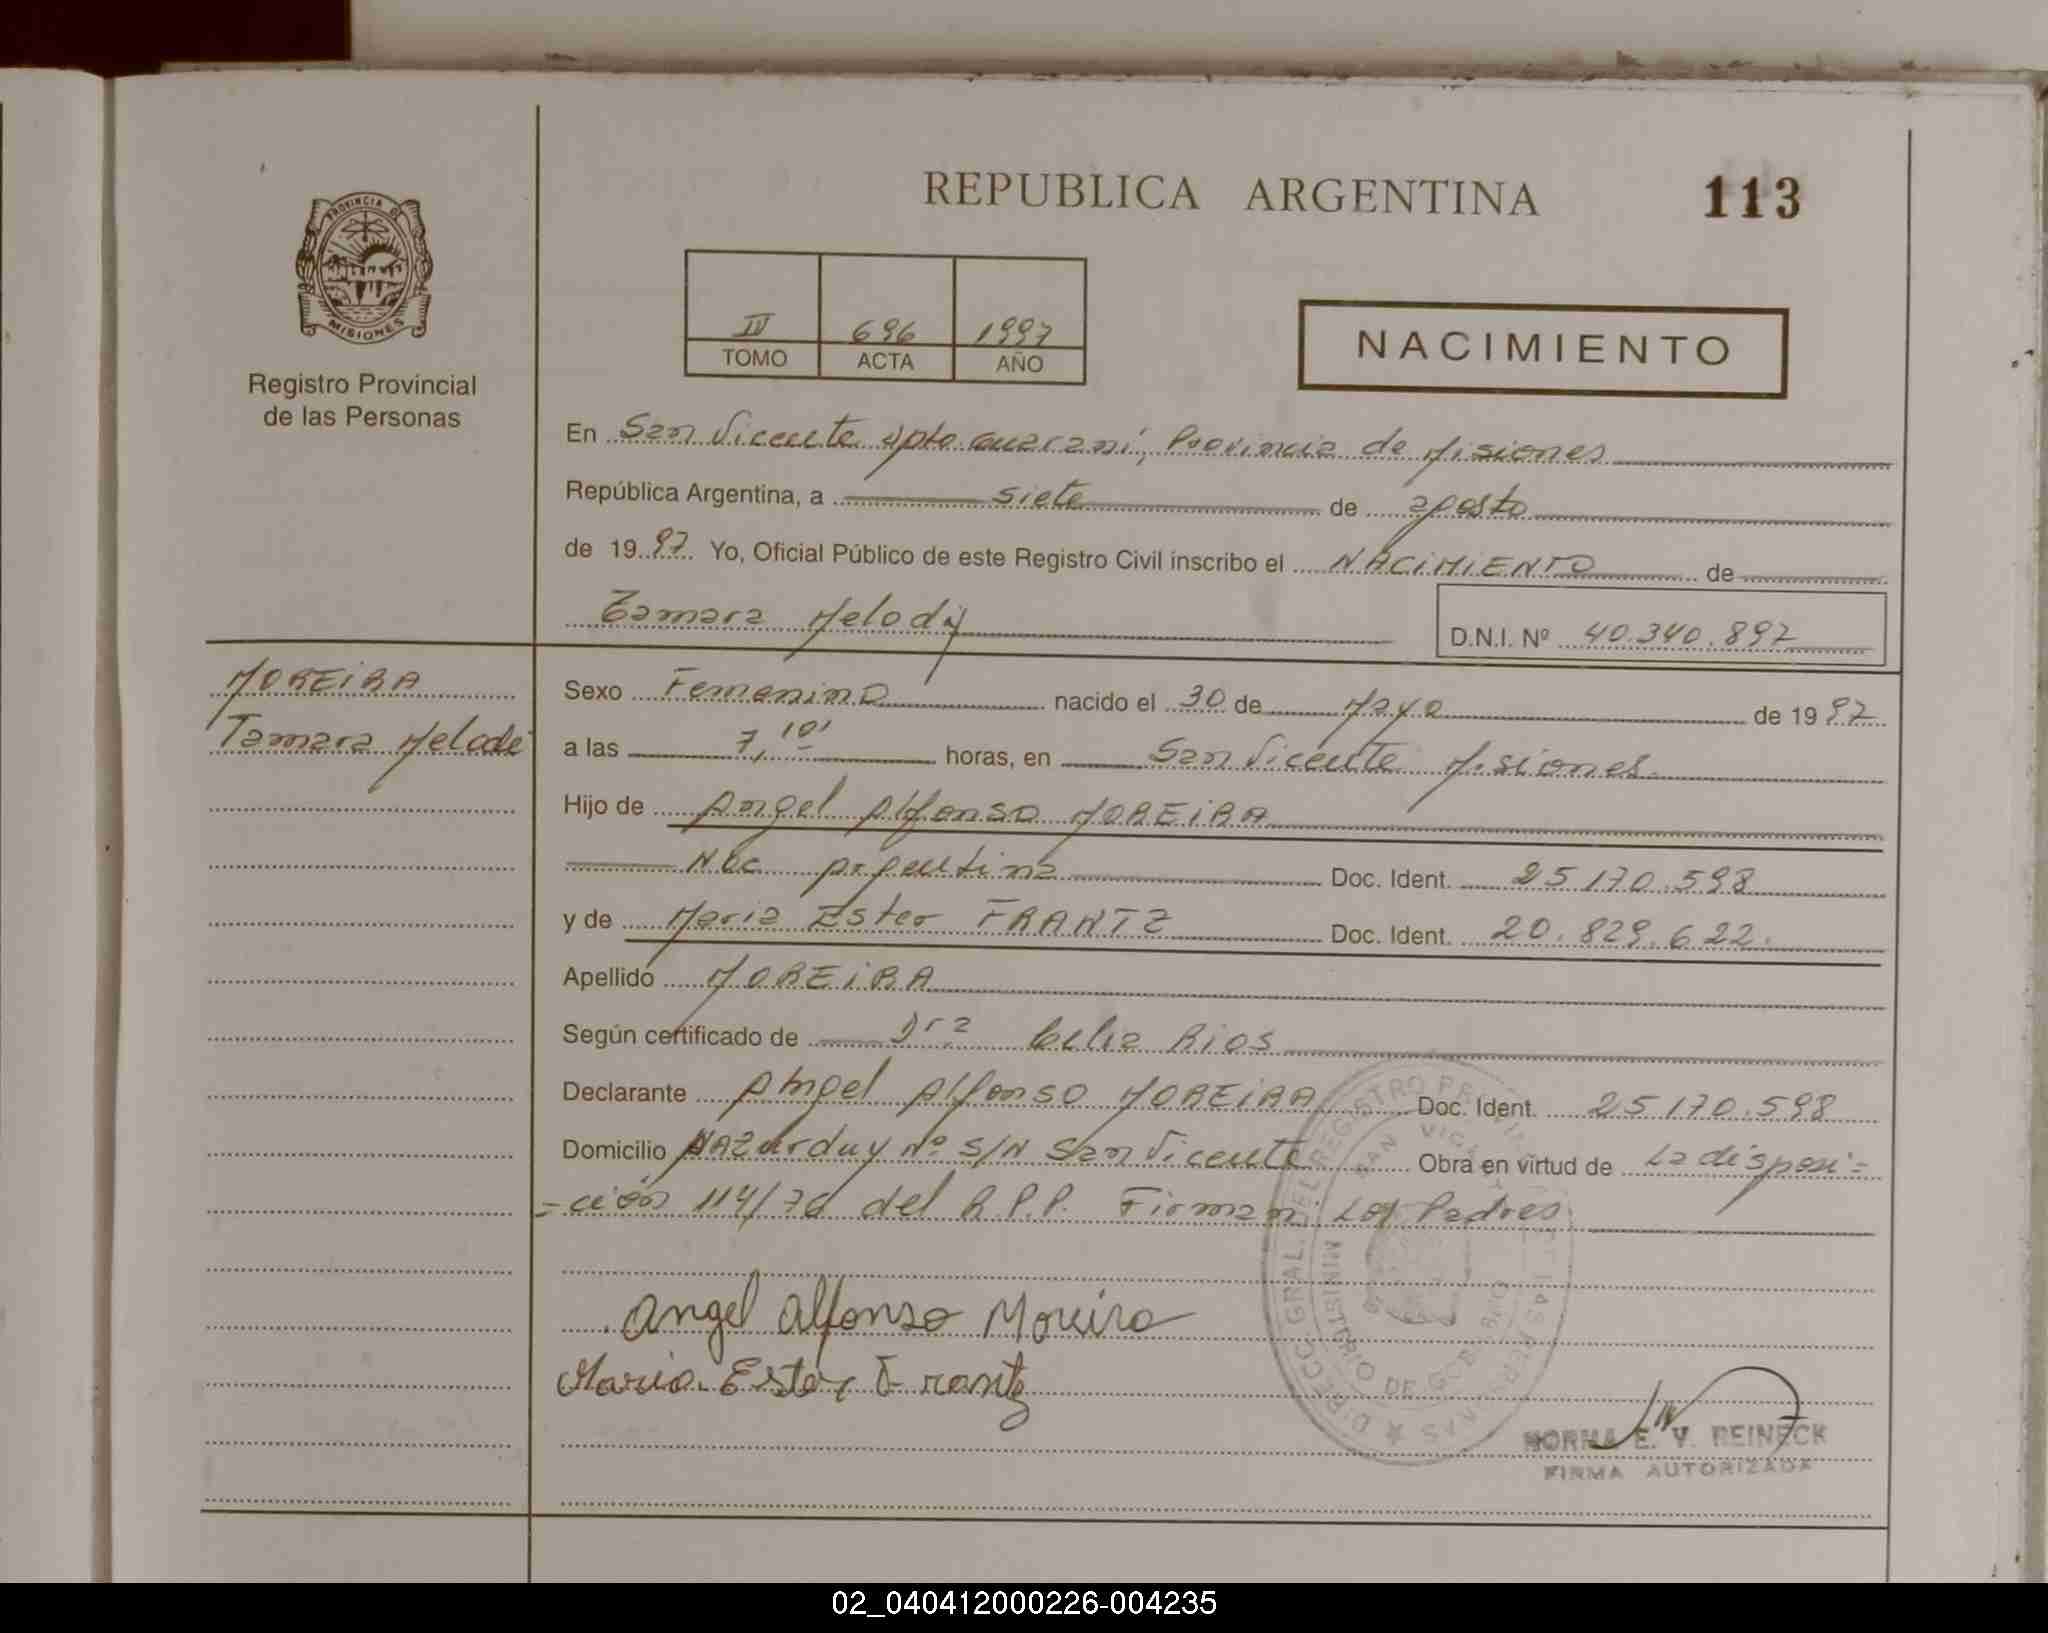 REPUBLICA ARGENTINA
113
PROVINCIA DE
MISIONES
Registro Provincial
de las Personas
IV 696 1997
TOMO ACTA AÑO
NACIMIENTO
En San Vicente Dpto Guaraní, Provincia de Misiones
República Argentina, a siete de agosto
de 1997 Yo, Oficial Público de este Registro Civil inscribo el NACIMIENTO de
Tamara Melody
D.N.I. Nº 40.340.897
MOREIRA
Tamara Melode
Sexo Femenino nacido el 30 de Mayo de 1997
a las 7,10' horas, en San Vicente Misiones
Hijo de Angel Alfonso MOREIRA
Nac Argentina Doc. Ident. 25.170.598
y de Maria Ester FRANTZ Doc. Ident. 20.829.622.
Apellido MOREIRA
Según certificado de Dra Celia Rios
Declarante Angel Alfonso MOREIRA Doc. Ident. 25.170.598
Domicilio AAZurduy Nº S/N San Vicente Obra en virtud de La disposi=
=ción 114/70 del R.P.P. Firman Los Padres
Angel Alfonso Moreira
Maria Ester Frantz
DIRECC. GRAL. DEL REGISTRO PERSONAS
SAN VICENTE
MINISTERIO DE GOBIERNO
NORMA E. V. REINECK
FIRMA AUTORIZADA
02_040412000226-004235